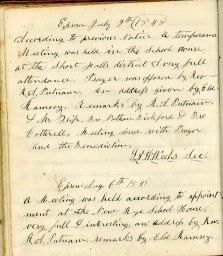 Epsom July 9th 1848
According to previous Notice A temperance
Meeting was held in the School House
at the Short Falls district A very full
attendance. Prayer was offered by Rev
R.A. Putnam. An address given by Elde
Ramsey. Remarks by R.A. Putnam
& Mr. Drake. Bro Pelham Bickford & Bro
Cotterell. Meeting closed with Prayer
and the Benediction.
Sec.
Epsom Aug 6th 1848
A Meeting was held according to appoint-
ment at the New Rye School House,
very full & interesting, an address by Rev.
R.A. Putnam, remarks by Elde Ramsey.